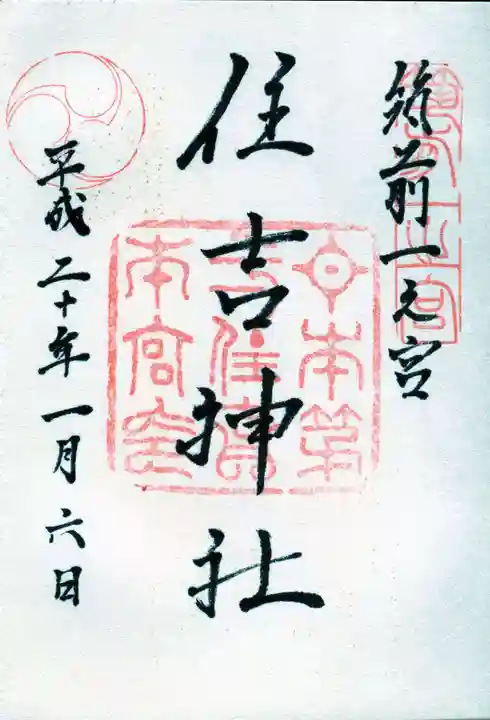 筑前一之宮
住吉神社
平成二十年一月六日
筑前一之宮
日本第
一住吉
本宮